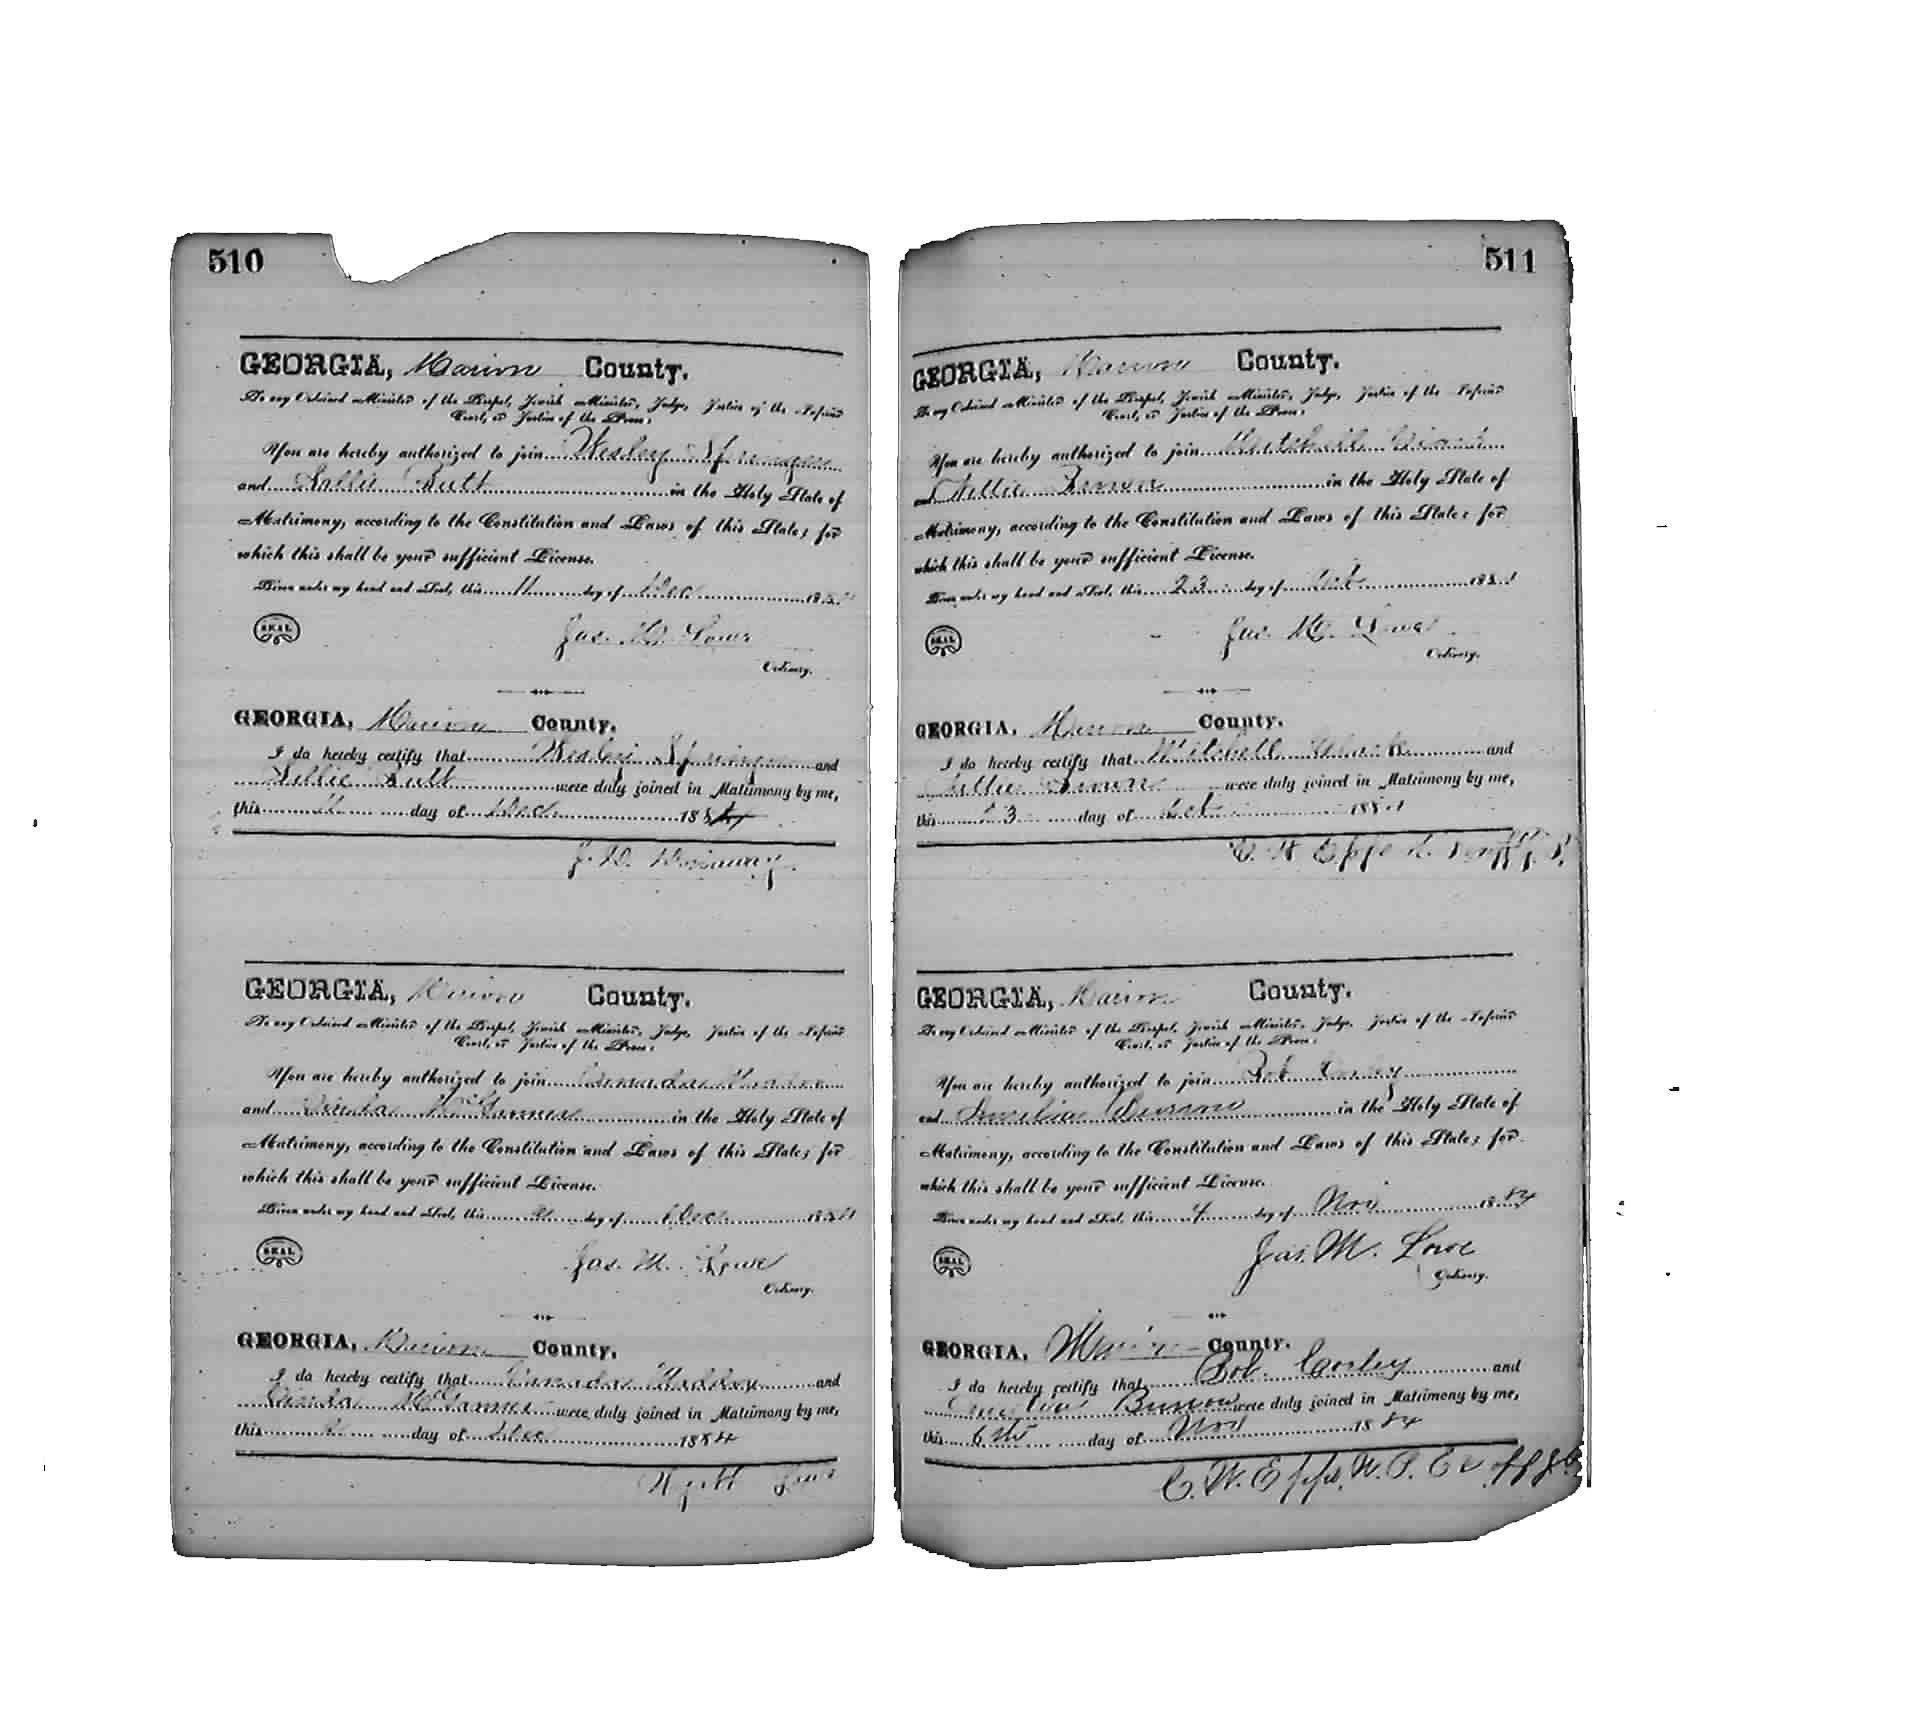 510
GEORGIA, Marion County.
To any Ordained Minister of the Gospel, Jewish Minister, Judge, Justice of the Inferior
Court, or Justice of the Peace:
You are hereby authorized to join Wesley
and Sallie Butt in the Holy State of
Matrimony, according to the Constitution and Laws of this State; for
which this shall be your sufficient License.
Given under my hand and Seal, this 11 day of Dec 188
SEAL
Jas. M. Lowe
Ordinary.
GEORGIA, Marion County.
I do hereby certify that and
Sallie Butt were duly joined in Matrimony by me,
this 11 day of Dec 1884
J. D.
GEORGIA, Marion County.
To any Ordained Minister of the Gospel, Jewish Minister, Judge, Justice of the Inferior
Court, or Justice of the Peace:
You are hereby authorized to join
and in the Holy State of
Matrimony, according to the Constitution and Laws of this State; for
which this shall be your sufficient License.
Given under my hand and Seal, this 2 day of Dec 1884
SEAL
Jas. M. Lowe
Ordinary.
GEORGIA, Marion County.
I do hereby certify that and
were duly joined in Matrimony by me,
this 2 day of Dec 1884
511
GEORGIA, Marion County.
To any Ordained Minister of the Gospel, Jewish Minister, Judge, Justice of the Inferior
Court, or Justice of the Peace:
You are hereby authorized to join
and in the Holy State of
Matrimony, according to the Constitution and Laws of this State; for
which this shall be your sufficient License.
Given under my hand and Seal, this 23 day of Oct 188
SEAL
Jas. M. Lowe
Ordinary.
GEORGIA, Marion County.
I do hereby certify that Mitchell and
were duly joined in Matrimony by me,
this 23 day of Oct 188
C. W. Epps
GEORGIA, Marion County.
To any Ordained Minister of the Gospel, Jewish Minister, Judge, Justice of the Inferior
Court, or Justice of the Peace:
You are hereby authorized to join Bob Corley
and in the Holy State of
Matrimony, according to the Constitution and Laws of this State; for
which this shall be your sufficient License.
Given under my hand and Seal, this 4 day of Nov 1884
SEAL
Jas. M. Lowe
Ordinary.
GEORGIA, Marion County.
I do hereby certify that Bob. Corley and
were duly joined in Matrimony by me,
this 6th day of Nov 1884
C. W. Epps, N. P.